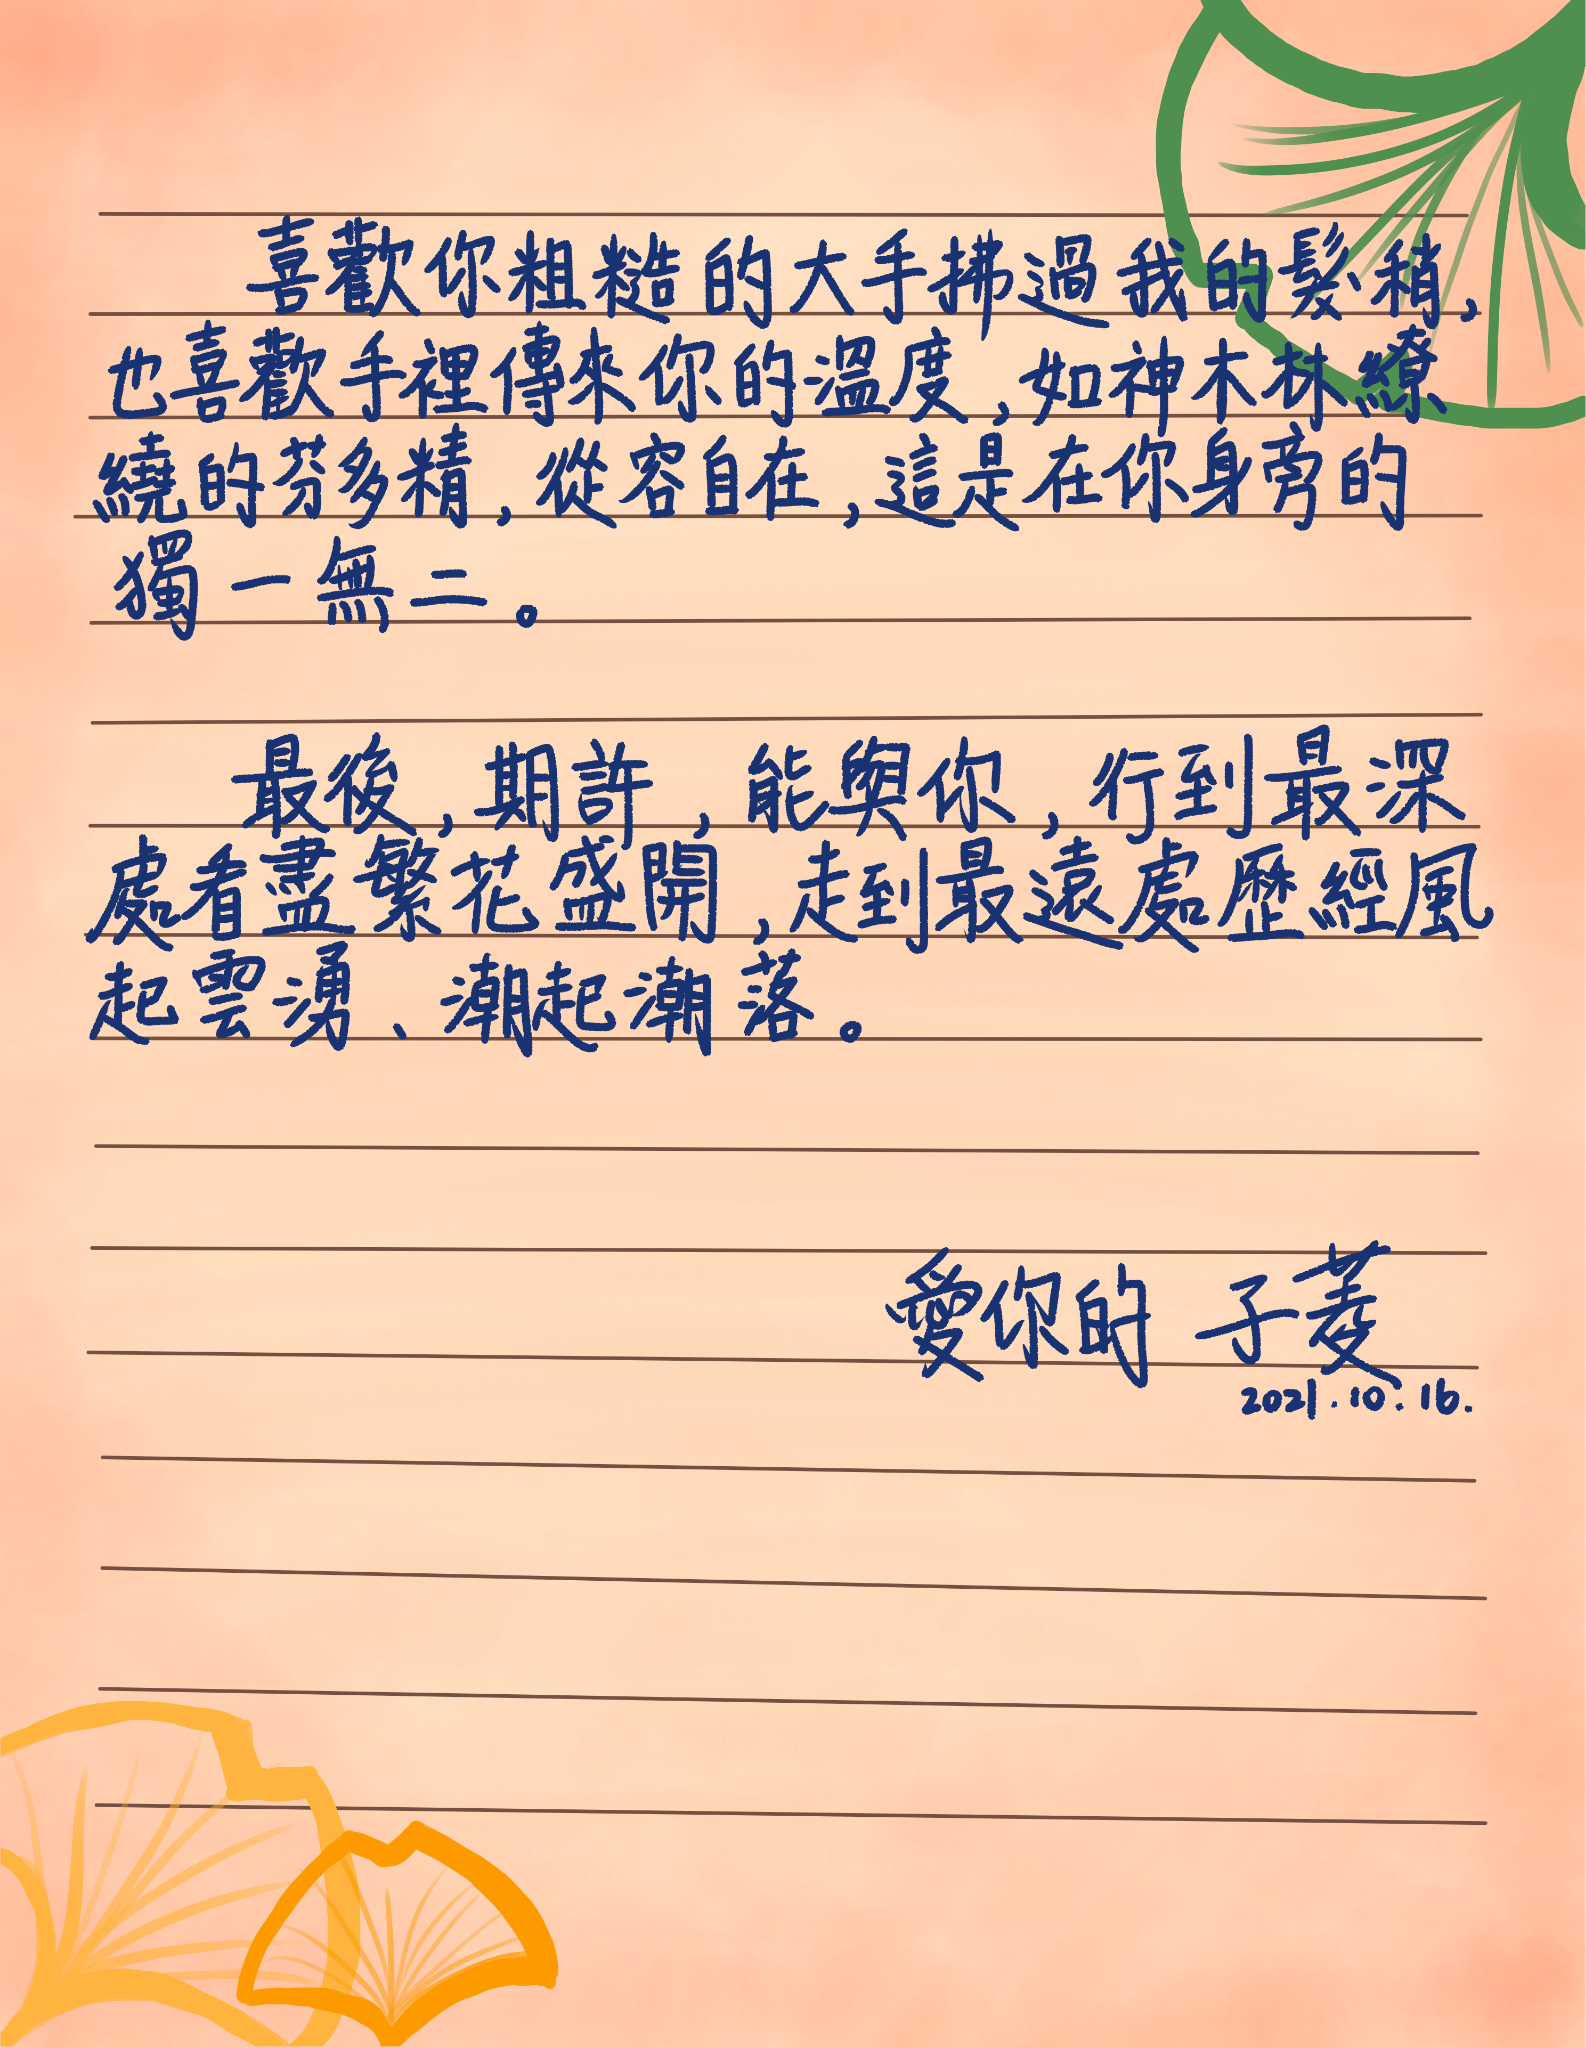 喜歡你粗糙的大手拂過我的髮稍,
也喜歡手裡傳來你的溫度,如神木林繚
繞的芬多精,從容自在,這是在你身旁的
獨一無二。
最後,期許,能與你,行到最深
處看盡繁花盛開,走到最遠處歷經風
起雲湧、潮起潮落。
愛你的 子菱
2021.10.16.